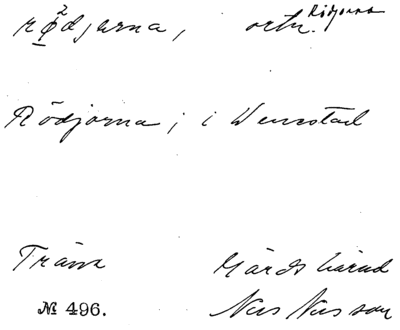 rø²djarna, ortn. Rödjorna
Rödjorna; i Wennestad
Träne Gärds härad
№ 496. Nils Nilsson